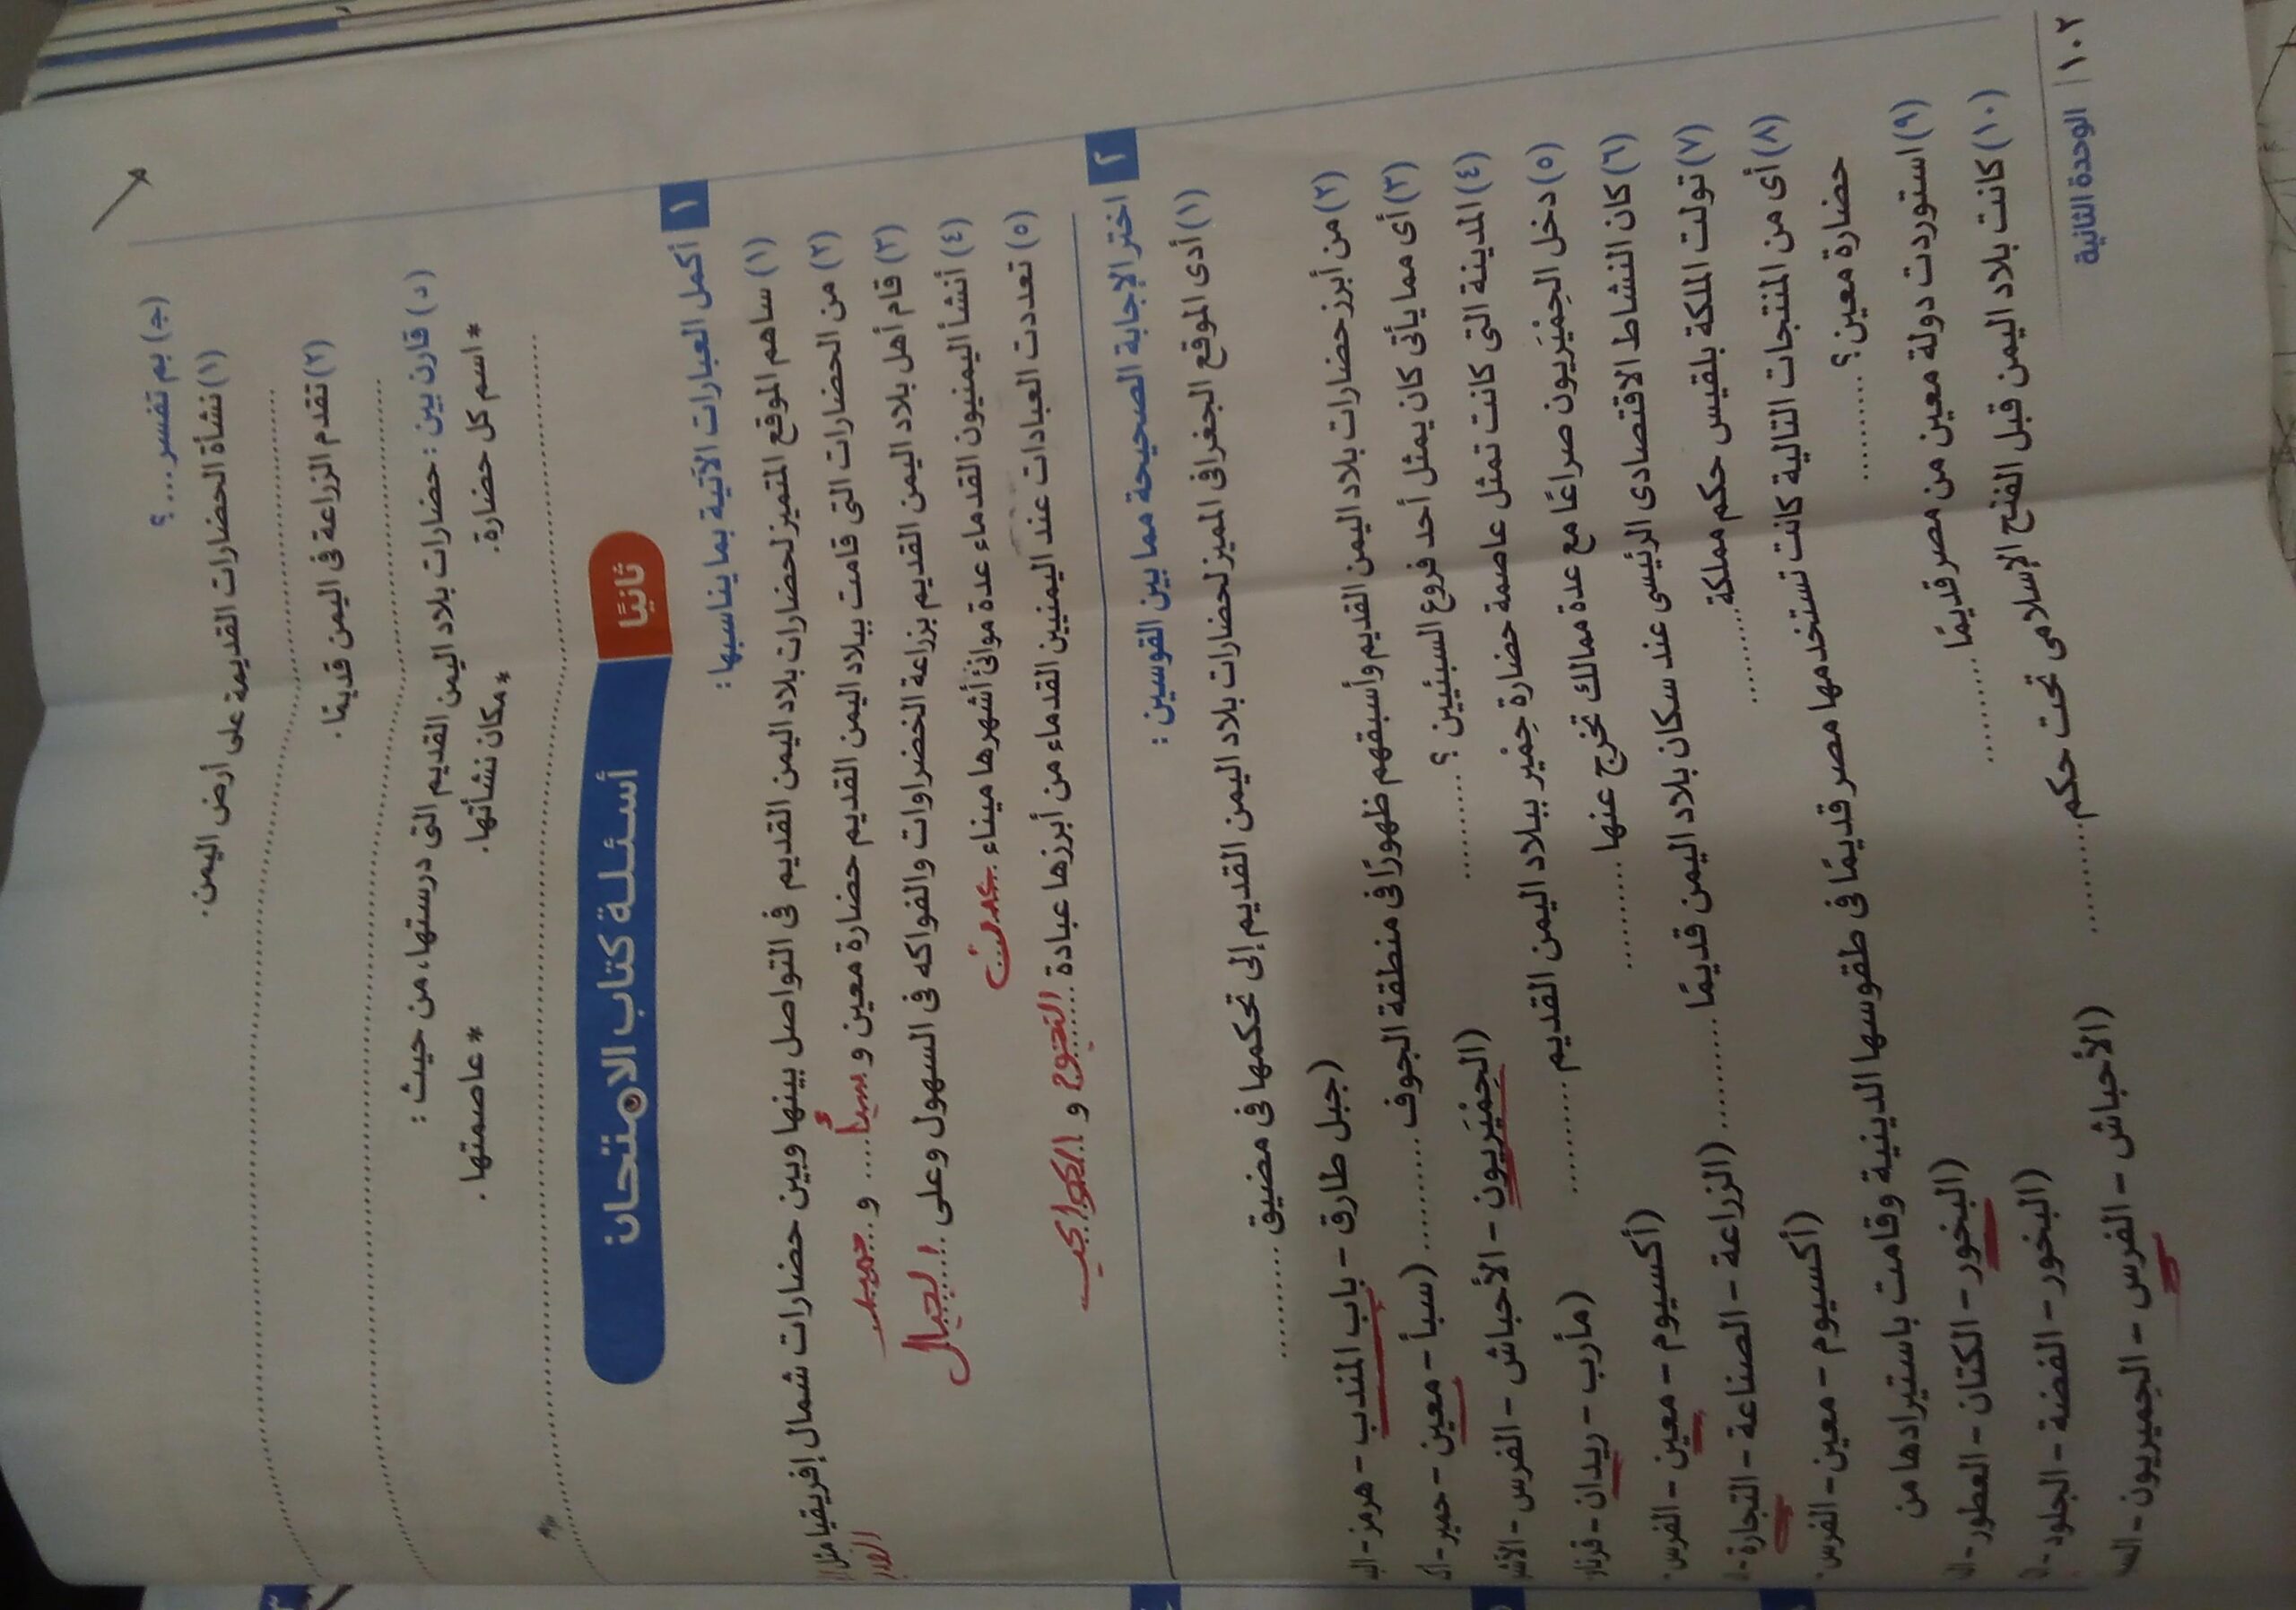 (جـ) بم تفسر ...؟
(١) نشأة الحضارات القديمة على أرض اليمن.
(٢) تقدم الزراعة فى اليمن قديمًا.
(د) قارن بين : حضارات بلاد اليمن القديم التى درستها، من حيث :
* اسم كل حضارة. * مكان نشأتها. * عاصمتها.
ثانيًا أسئلة كتاب الامتحان
١ أكمل العبارات الآتية بما يناسبها :
(١) ساهم الموقع المتميز لحضارات بلاد اليمن القديم فى التواصل بينها وبين حضارات شمال إفريقيا مثل
(٢) من الحضارات التى قامت ببلاد اليمن القديم حضارة معين و سبأ و حمير
(٣) قام أهل بلاد اليمن القديم بزراعة الخضراوات والفواكه فى السهول وعلى الجبال
(٤) أنشأ اليمنيون القدماء عدة موانئ أشهرها ميناء عدن
(٥) تعددت العبادات عند اليمنيين القدماء من أبرزها عبادة النجوم و الكواكب
٢ اختر الإجابة الصحيحة مما بين القوسين :
(١) أدى الموقع الجغرافى المميز لحضارات بلاد اليمن القديم إلى تحكمها فى مضيق ..........
(جبل طارق – باب المندب – هرمز –
(٢) من أبرز حضارات بلاد اليمن القديم وأسبقهم ظهورًا فى منطقة الجوف ..........
(سبأ – معين – حمير –
(٣) أى مما يأتى كان يمثل أحد فروع السبئيين ؟ ..........
(الحِمْيَريون – الأحباش – الفرس –
(٤) المدينة التى كانت تمثل عاصمة حضارة حِمْير ببلاد اليمن القديم ..........
(مأرب – ريدان –
(٥) دخل الحِمْيَريون صراعًا مع عدة ممالك تخرج عنها ..........
(أكسيوم – معين – الفرس
(٦) كان النشاط الاقتصادى الرئيسى عند سكان بلاد اليمن قديمًا ..........
(الزراعة – الصناعة – التجارة –
(٧) تولت الملكة بلقيس حكم مملكة ..........
(أكسيوم – معين – الفرس
(٨) أى من المنتجات التالية كانت تستخدمها مصر قديمًا فى طقوسها الدينية وقامت باستيرادها من
حضارة معين ؟ ..........
(البخور – الكتان – العطور –
(٩) استوردت دولة معين من مصر قديمًا ..........
(البخور – الفضة – الجلود –
(١٠) كانت بلاد اليمن قبل الفتح الإسلامى تحت حكم ..........
(الأحباش – الفرس – الحِمْيَريون –
١٠٢ | الوحدة الثانية